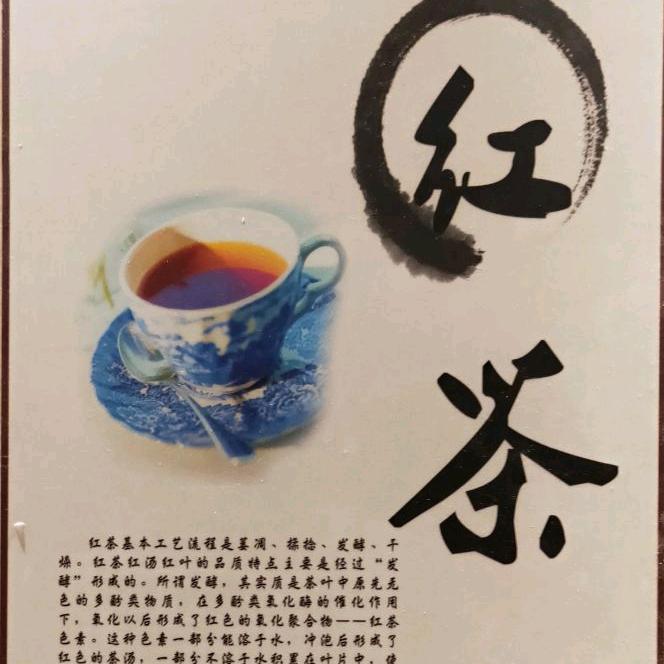 红
茶
红茶基本工艺流程是萎凋、揉捻、发酵、干
燥。红茶红汤红叶的品质特点主要是经过“发
酵”形成的。所谓发酵，其实质是茶叶中原先无
色的多酚类物质，在多酚类氧化酶的催化作用
下，氧化以后形成了红色的氧化聚合物——红茶
色素。这种色素一部分能溶于水，冲泡后形成了
红色的茶汤，一部分不溶于水积累在叶片中，使